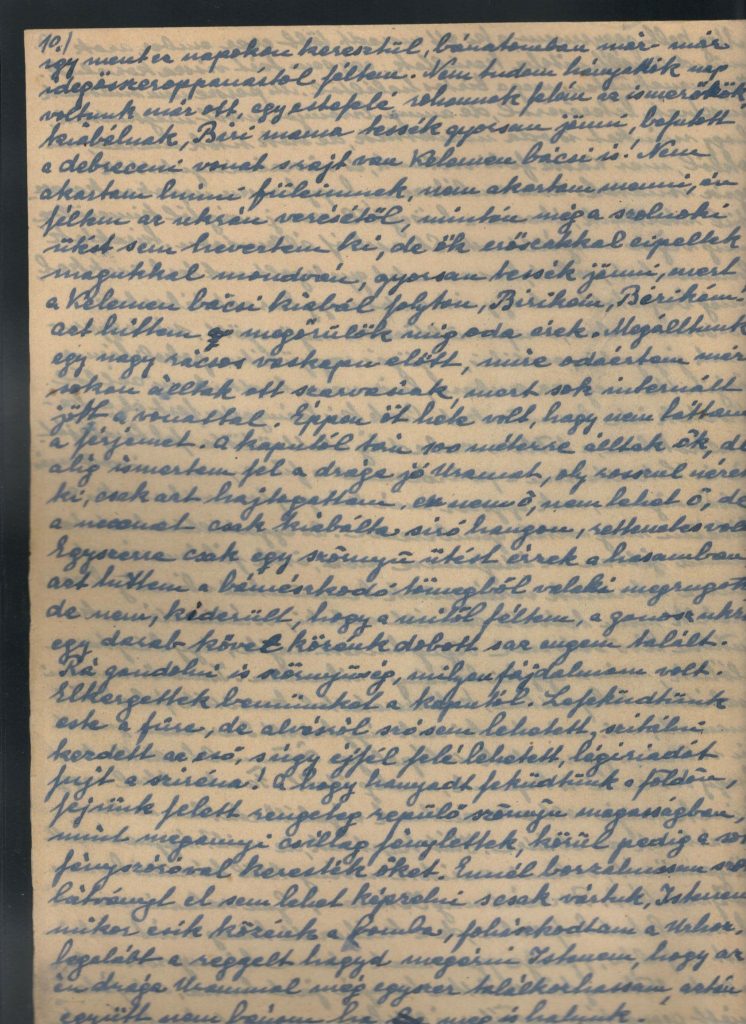 10./
így ment ez napokon keresztül, bánatomban már-már
idegösszeroppanástól féltem. Nem tudom hányadik nap
voltunk már ott, egy estefelé rohannak felém az ismerősök
kiabálnak, Biri mama tessék gyorsan jönni, befutott
a debreceni vonat s rajt van Kelemen bácsi is! Nem
akartam hinni füleimnek, nem akartam menni, én
féltem az ukrán verésétől, mintán még a szolnoki
ütést sem hevertem ki, de ők erőszakkal cipeltek
magukkal mondván, gyorsan tessék jönni, mert
a Kelemen bácsi kiabál folyton, Birikém, Birikém!
azt hittem megőrülök míg oda érek. Megálltunk
egy nagy rácsos vaskapu előtt, mire odaértem már
sokan álltak ott szarvasiak, mert sok internált
jött a vonattal. Éppen öt hete volt, hogy nem láttam
a férjemet. A kaputól tán 100 méterre álltak ők, de
alig ismertem fel a drága jó Uramat, oly rosszul néze
ki, csak azt hajtogattam, ez nem ő, nem lehet ő, de
a csak kiabálta síró hangon, rettenetes volt
Egyszerre csak egy szörnyű ütést érzek a hasamban
azt hittem a bámészkodó tömegből valaki megrugott
de nem, kiderült, hogy a mitől féltem, a gonosz ukrá
egy darab követ közénk dobott s az engem talált.
Rá gondolni is szörnyűség, milyen fájdalmam volt.
Elkergettek bennünket a kaputól. Lefeküdtünk
este a fűre, de alvásról szó sem lehetett, szitálni
kezdett az eső, s úgy éjfél felé lehetett, légiriadót
fujt a sziréna! A hogy hanyadt feküdtünk a földön,
fejünk felett rengeteg repülő szörnyű magasságban,
mint megannyi csillag fénylettek, körül pedig a
fényszóróval keresték őket. Ennél borzalmasan
látványt el sem lehet képzelni s csak vártuk, Istenem
mikor esik közénk a bomba, fohászkodtam a Urhoz,
legalább a reggelt hagyd megérni Istenem, hogy az
én drága Urammal még egyszer találkozhassam aztán
együtt nem bánom ha meg is halunk.